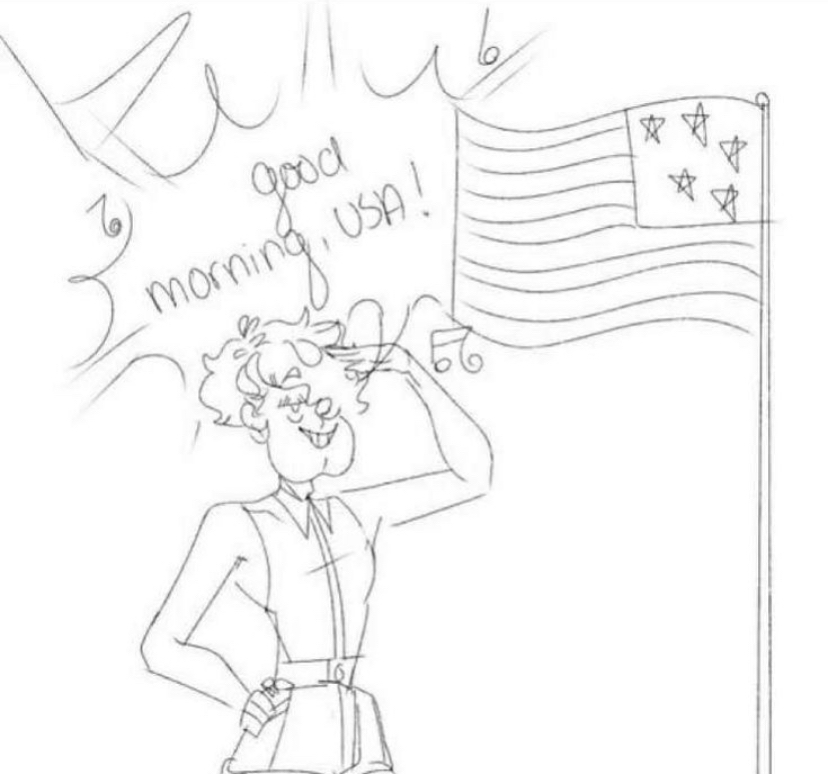 good
morning, USA!